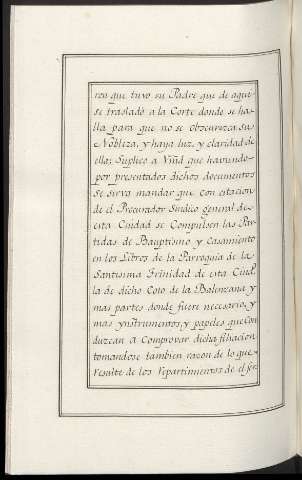 ron que tuvo su Padre que de aqui
se trasladó a la Corte donde se ha-
lla para que no se obscurezca su
Nobleza, y haya luz, y claridad de
ella; Suplico a Vmd que haviendo
por presentados dichos documentos
se sirva mandar que con citacion
de el Procurador Sindico general de
esta Ciudad se Compulsen las Par-
tidas de Bauptismo y Casamiento
en los Libros de la Parroquia de la
Santisima Trinidad de esta Ciud.
la de dicho Coto de la Balenzana y
mas partes donde fuere necesario, y
mas ynstrumentos, y papeles que con
duzcan a Comprovar dicha filiacion
tomandose tambien razon de lo que
resulte de los repartimientos de el ser